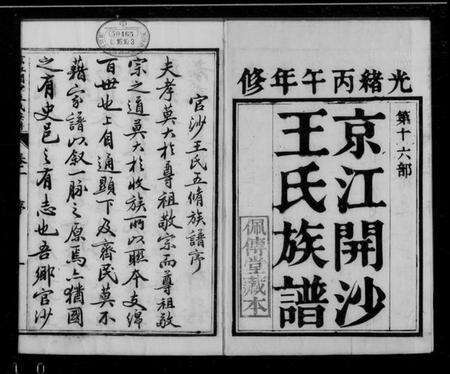 光緒丙午年修
第十六部
京江開沙
王氏族譜
佩傳堂藏本
官沙王氏五脩族譜序
夫孝莫大於尊祖敬宗而尊祖敬
宗之道莫大於收族所以聯本支綿
百世也上自通顯下及齊民莫不
藉家譜以敘一脈之原焉亦猶國
之有史邑之有志也吾鄉官沙